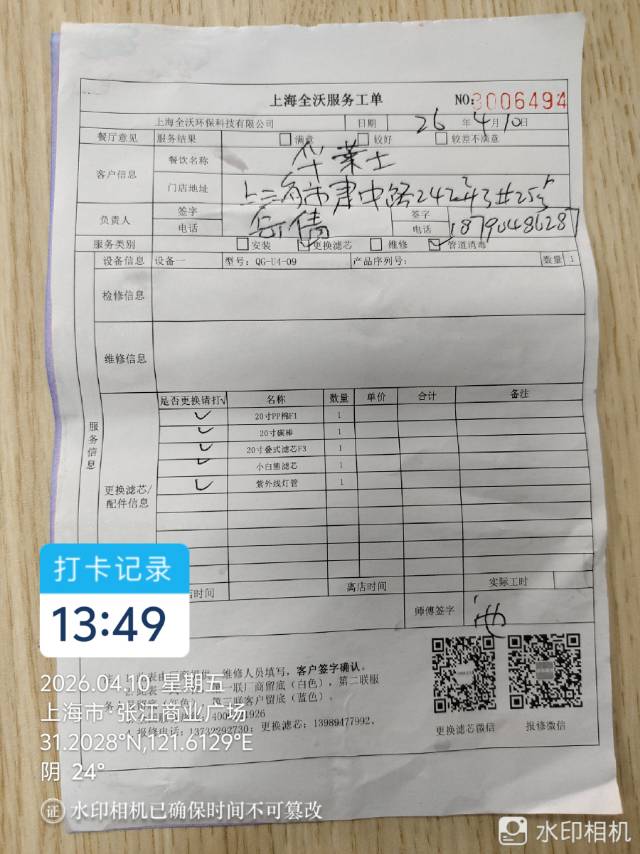 上海全沃服务工单 NO:3006494
上海全沃环保科技有限公司 日期 26年4月10日
餐厅意见 服务结果 满意 较好 较差不满意
客户信息 餐饮名称 华莱士
门店地址 上海市建中路
负责人 签字 签字
电话 电话 18790486287
服务类别 安装 更换滤芯 维修 管道消毒
服务信息
设备信息 设备一 型号: QG-U4-09 产品序列号: 数量 1
检修信息
维修信息
更换滤芯/配件信息
是否更换请打√ 名称 数量 单价 合计 备注
20寸PP棉F1 1
20寸碳棒 1
20寸叠式滤芯F3 1
小白熊滤芯 1
紫外线灯管 1
店时间 离店时间 实际工时
师傅签字
维修人员填写,客户签字确认。
联厂商留底(白色), 第二联服
客户留底(蓝色)。
1926
报修电话: 13732292730; 更换滤芯: 13989477992、
更换滤芯微信 报修微信
打卡记录
13:49
2026.04.10 星期五
上海市·张江商业广场
31.2028°N,121.6129°E
阴 24°
证 水印相机已确保时间不可篡改
水印相机